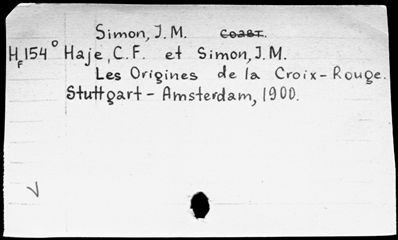 Simon, J.M. Coast.
HF154° Haje, C.F. et Simon, J.M.
Les Origines de la Croix-Rouge.
Stuttgart - Amsterdam, 1900.